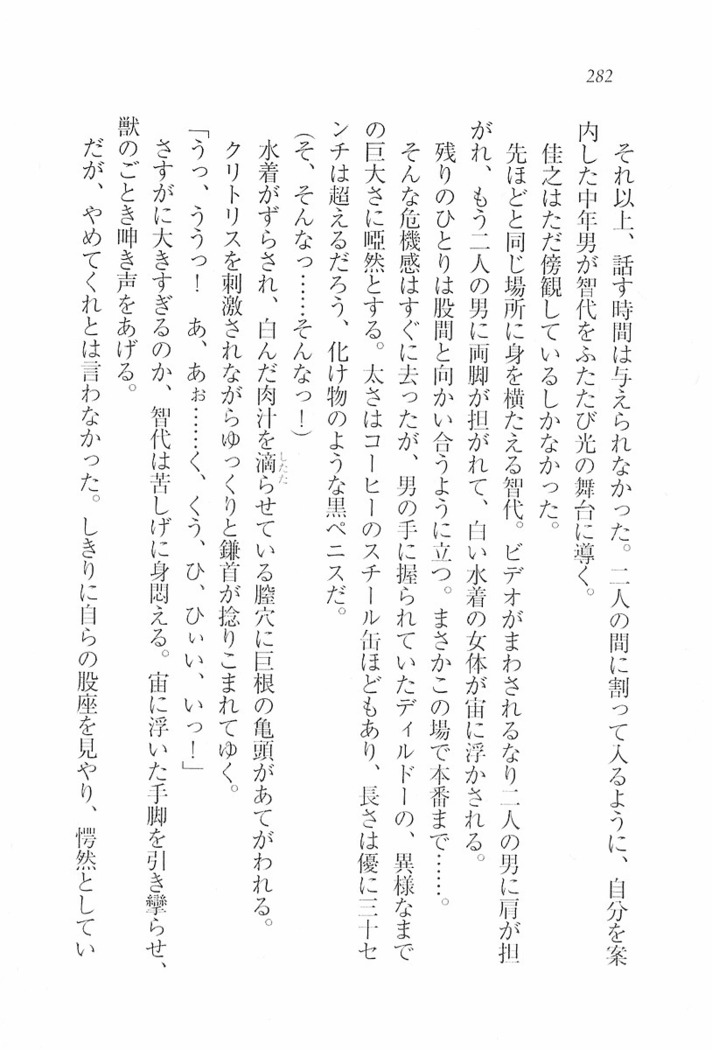 282
それ以上、話す時間は与えられなかった。二人の間に割って入るように、自分を案
内した中年男が智代をふたたび光の舞台に導く。
佳之はただ傍観しているしかなかった。
先ほどと同じ場所に身を横たえる智代。ビデオがまわされるなり二人の男に肩が担
がれ、もう二人の男に両脚が担がれて、白い水着の女体が宙に浮かされる。
残りのひとりは股間と向かい合うように立つ。まさかこの場で本番まで……。
そんな危機感はすぐに去ったが、男の手に握られていたディルドーの、異様なまで
の巨大さに啞然とする。太さはコーヒーのスチール缶ほどもあり、長さは優に三十セ
ンチは超えるだろう、化け物のような黒ペニスだ。
（そ、そんなっ……そんなっ！）
水着がずらされ、白んだ肉汁を滴らせている膣穴に巨根の亀頭があてがわれる。
したた
クリトリスを刺激されながらゆっくりと鎌首が捻りこまれてゆく。
「うっ、ううっ！　あ、あぉ……く、くう、ひ、ひぃい、いっ！」
さすがに大きすぎるのか、智代は苦しげに身悶える。宙に浮いた手脚を引き攣らせ、
獣のごとき呻き声をあげる。
だが、やめてくれとは言わなかった。しきりに自らの股座を見やり、愕然としてい